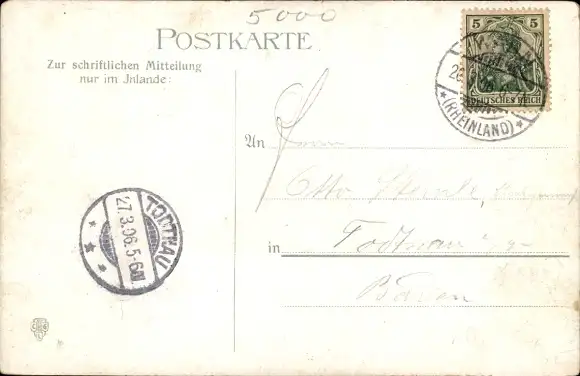 5000
POSTKARTE
Zur schriftlichen Mitteilung
nur im Jnlande:
5 5
DEUTSCHES REICH
(RHEINLAND)
An
Otto
in Todtnau
Baden
TODTNAU
27.3.06.5-6N